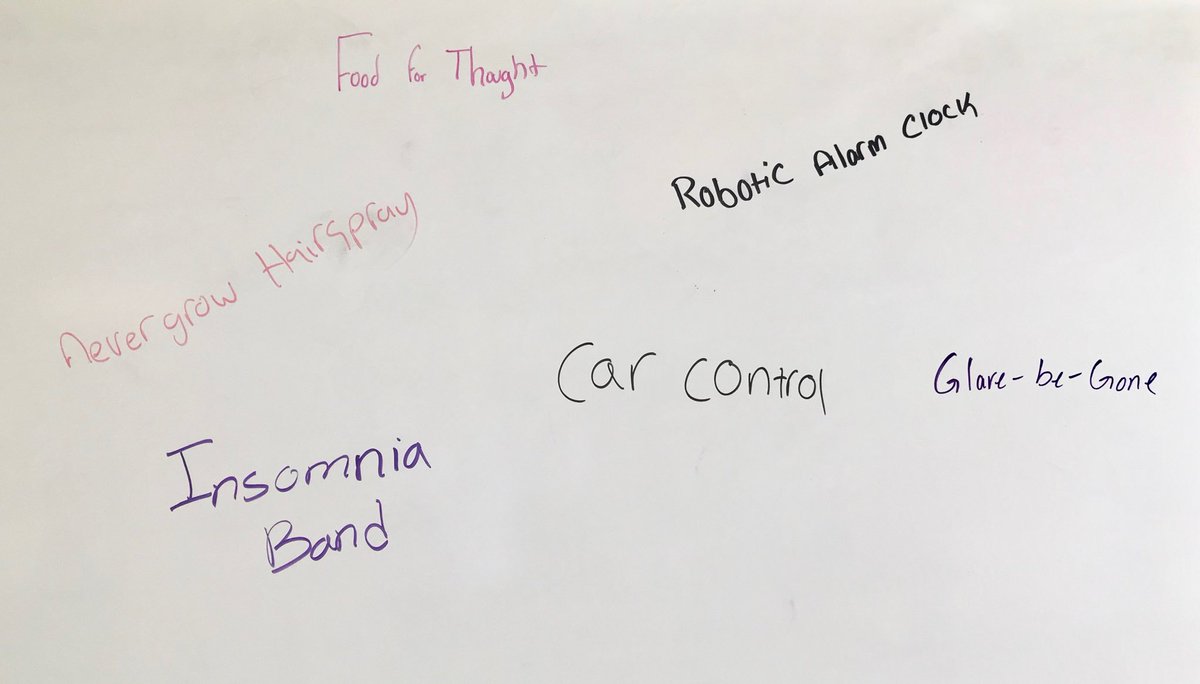 Food for Thought
Robotic Alarm Clock
Never grow Hairspray
Car control
Glare-be-Gone
Insomnia
Band